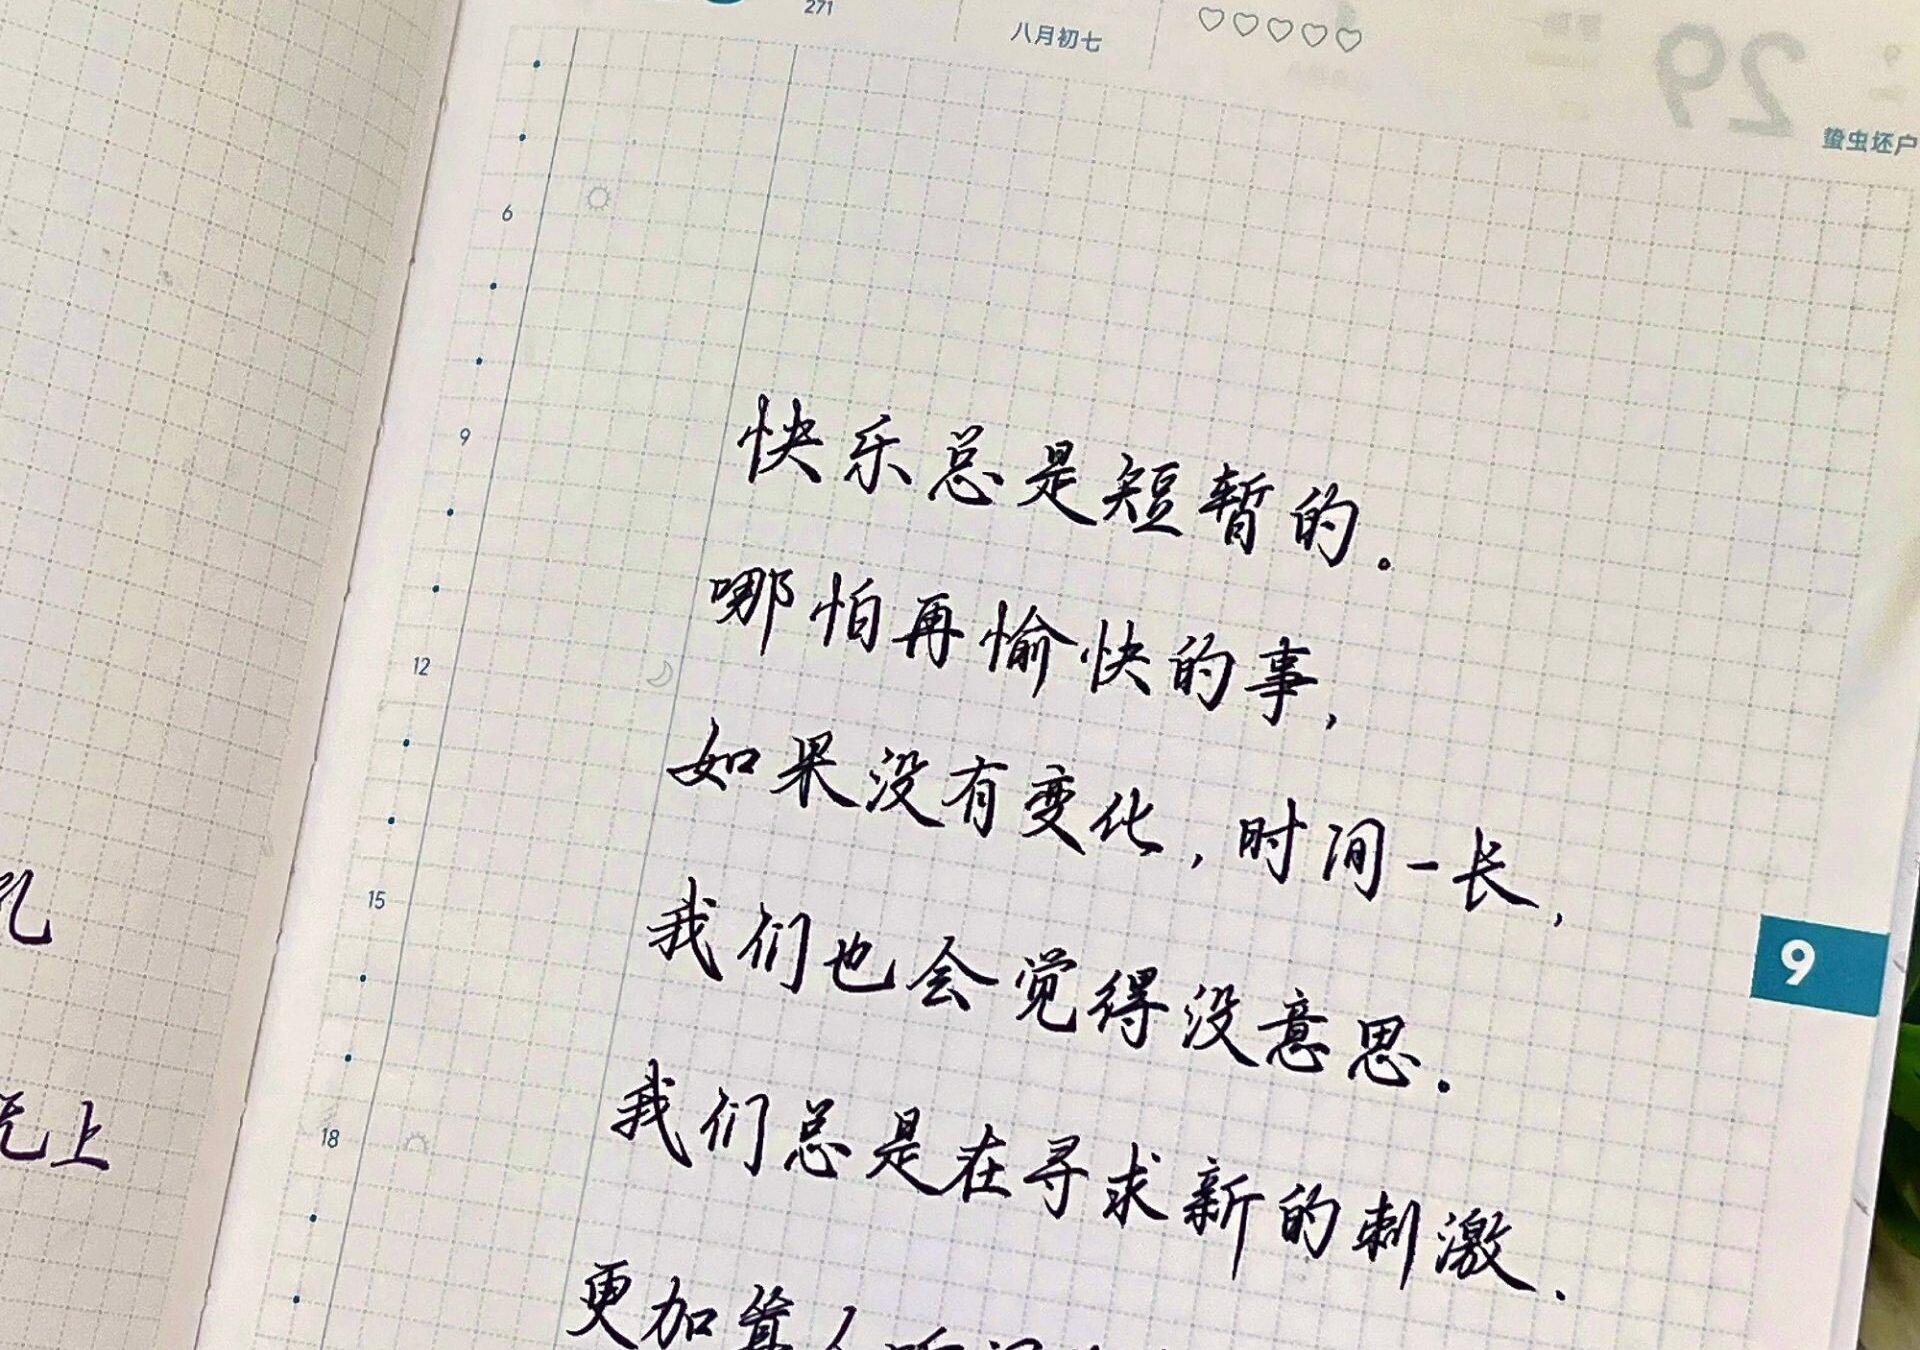 271
八月初七
29
蛰虫坯户
6
9
12
15
18
快乐总是短暂的。
哪怕再愉快的事,
如果没有变化,时间一长,
我们也会觉得没意思.
我们总是在寻求新的刺激.
更加
9
上